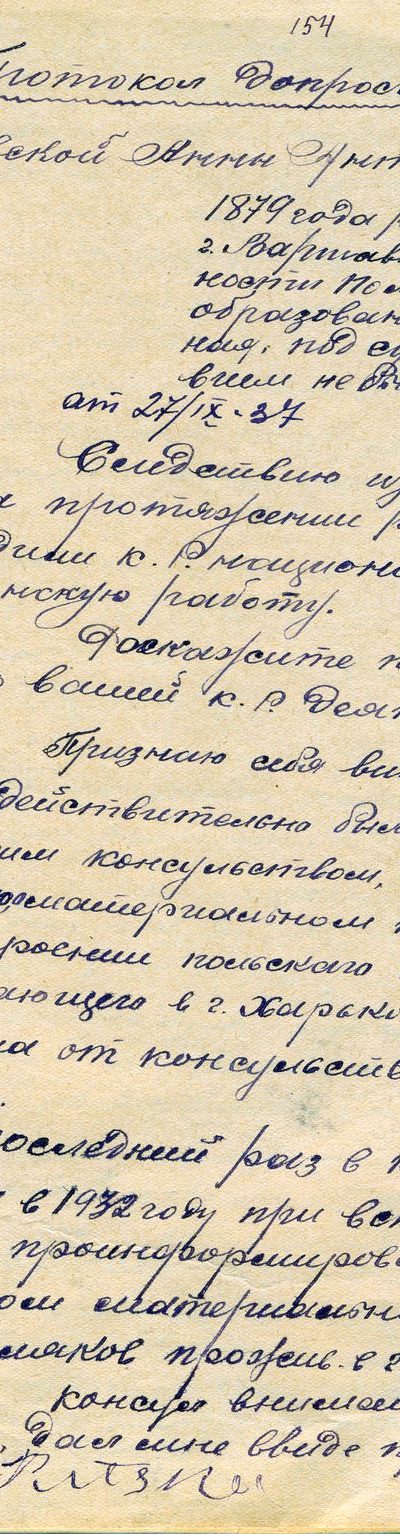 154
Протокол допрос
ской Анны Ант
1879 года р
г. Варшав
ности пол
образован
ная, под су
вием не бы
от 27/IX-37
Следствию из
протяжении р
дили к. р. национа
нскую работу.
Раскажите п
о вашей к. р. деят
Признаю себя ви
действительно был
им консульством,
материальном п
роении польскаго
ающего в г. Харько
на от консульств
последний раз в к
в 1932 году при вс
проинформирова
ом материальн
ляков прожив. в г
консул внимат
Дал мне ввиде п